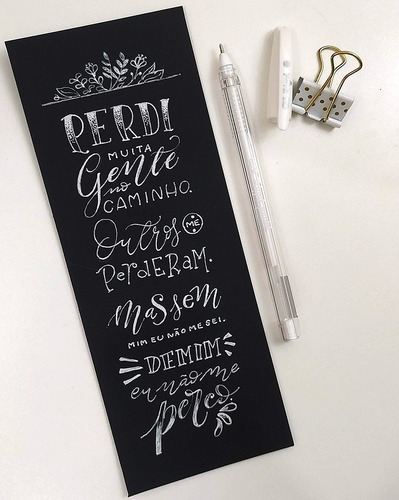 PERDI
MUITA
Gente
no
CAMINHO.
Outros ME
PerDERAM.
mas sem
MIM EU NÃO ME SEI.
DEMIM
eu não me
perco.